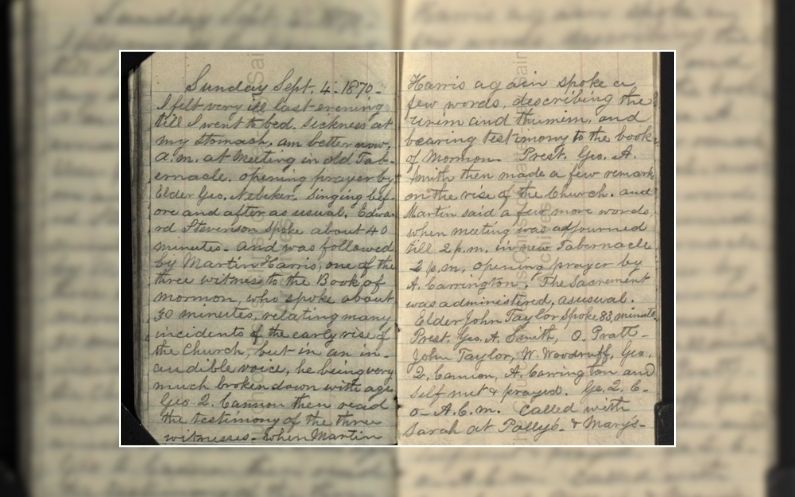 Sunday Sept. 4. 1870-
I felt very ill last evening
till I went to bed. Sickness at
my stomach, am better now.
a.m. at Meeting in old Tab-
ernacle. opening prayer by
Elder Geo. Nebeker. Singing bef-
ore and after as usual. Edwa-
rd Stevenson spoke about 40
minutes. and was followed
by Martin Harris, one of the
three witness to the Book of
Mormon, who spoke about
30 minutes, relating many
incidents of the early rise of
the Church, but in an in-
audible voice, he being very
much broken down with age
Geo Q. Cannon then read
the testimony of the three
witnesses- When Martin
Harris again spoke a
few words, describing the
urim and thumim, and
bearing testimony to the book
of Mormon- Prest. Geo. A.
Smith then made a few remark
on the rise of the Church. and
Martin said a few more words,
when meeting was adjourned
till 2 p.m. in new Tabernacle
2 p.m, opening prayer by
A. Carrington. The Sacrament
was administered, as usual.
Elder John Taylor Spoke 83, minute
Prest. Geo. A. Smith, O. Pratt-
John Taylor, W. Woodruff, Geo.
Q. Cannon, A. Carrington and
self met & prayed. Ge. Q. C-
o- A.C.m. Called with
Sarah at Polly's- & Mary's-